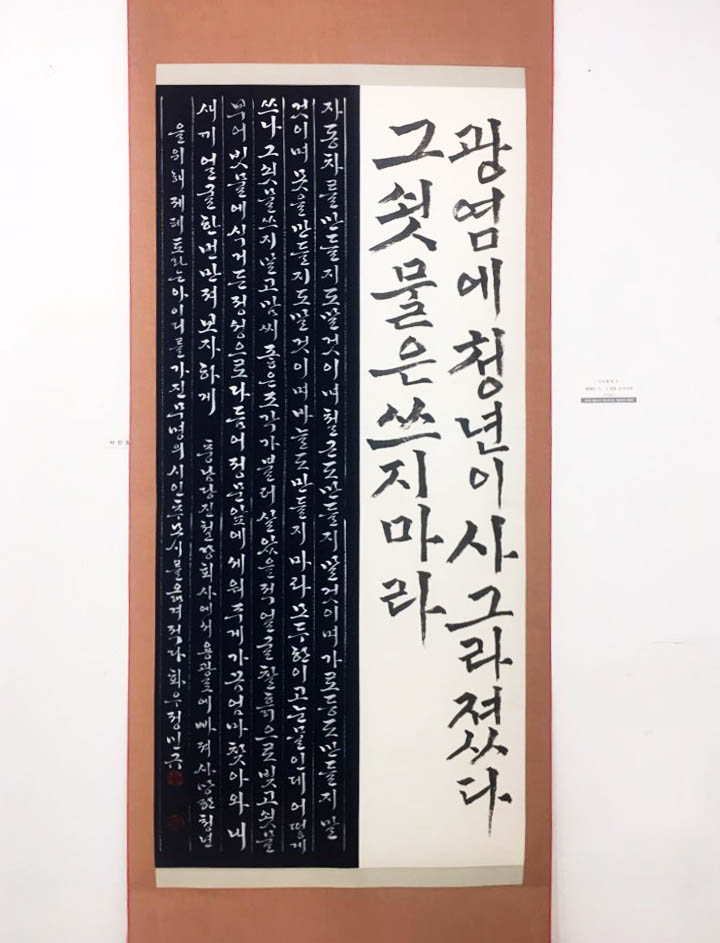 광염에 청년이 사그라졌다
그 쇳물은 쓰지 마라
자동차를 만들지도 말 것이며 철근도 만들지 말 것이며 가로등도 만들지 말
것이며 못을 만들지도 말 것이며 바늘도 만들지 마라 모두 한이고 눈물인데 어떻게
쓰나 그 쇳물 쓰지 말고 맘씨 좋은 조각가 불러 살았을 적 얼굴 찰흙으로 빚고 쇳물
부어 빗물에 식거든 정성으로 다듬어 정문 앞에 세워 주게 가끔 엄마 찾아와 내
새끼 얼굴 한번 만져 보자 하게 충남 당진 철강회사에서 용광로에 빠져 사망한 청년
을 위해 제페토라는 아이디를 가진 무명의 시인 추모시를 옮겨 적다